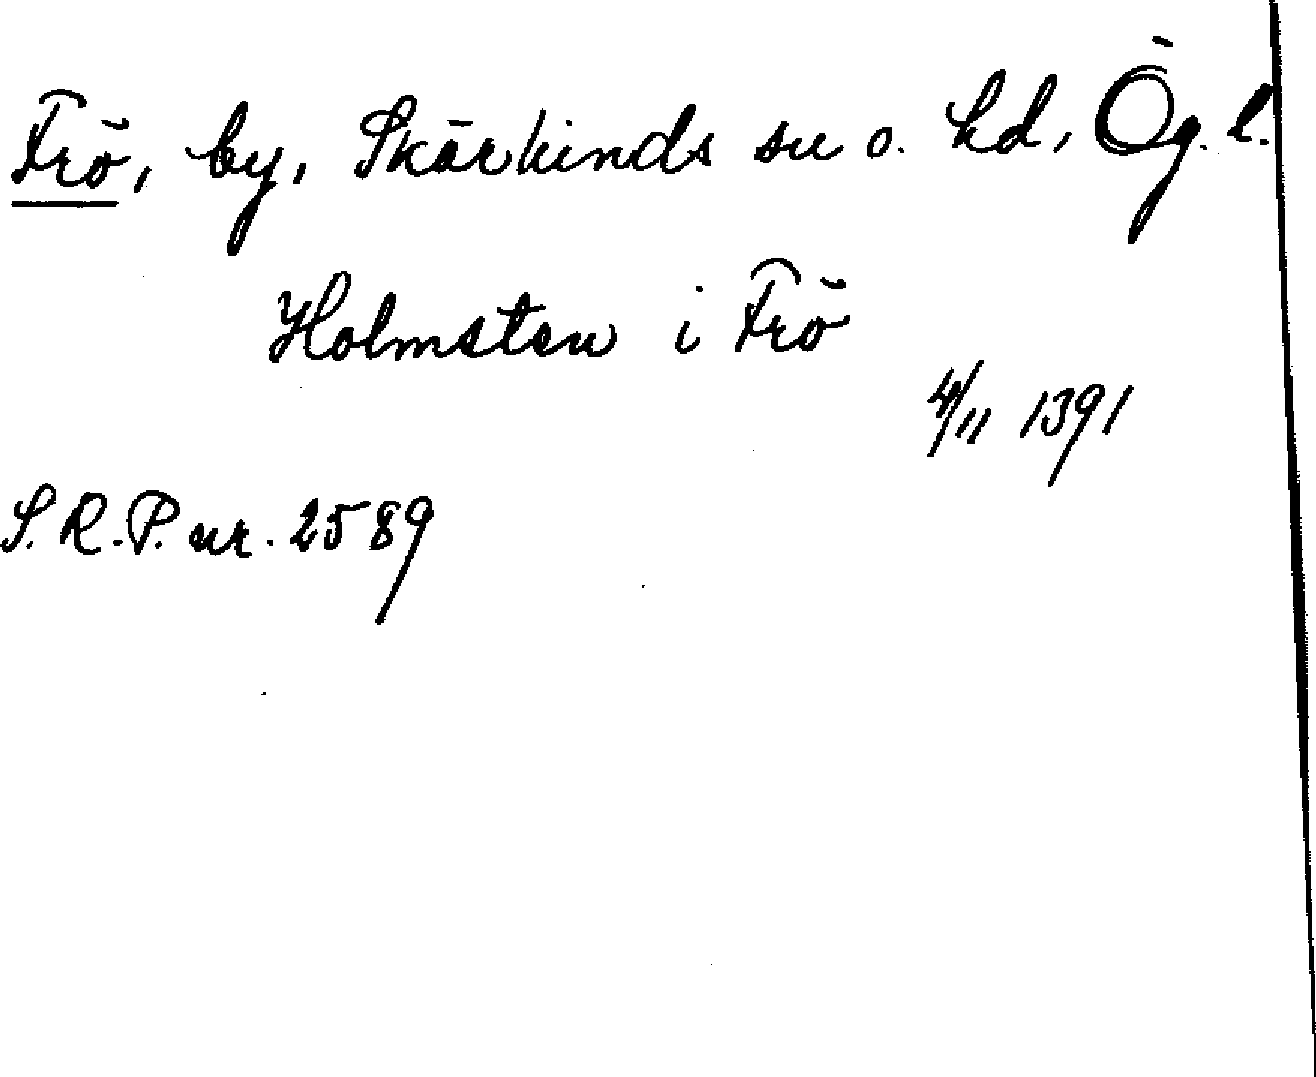 Frö, by, Skärkinds sn o. hd, Ög. l.
Holmsten i Frö
4/11 1391
S. R. P. nr. 2589